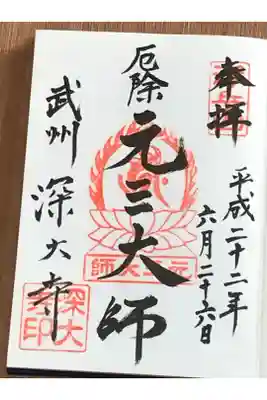 奉拝
平成二十二年
六月二十六日
厄除
元三大師
武州
深大寺
元三大師
深大寺印